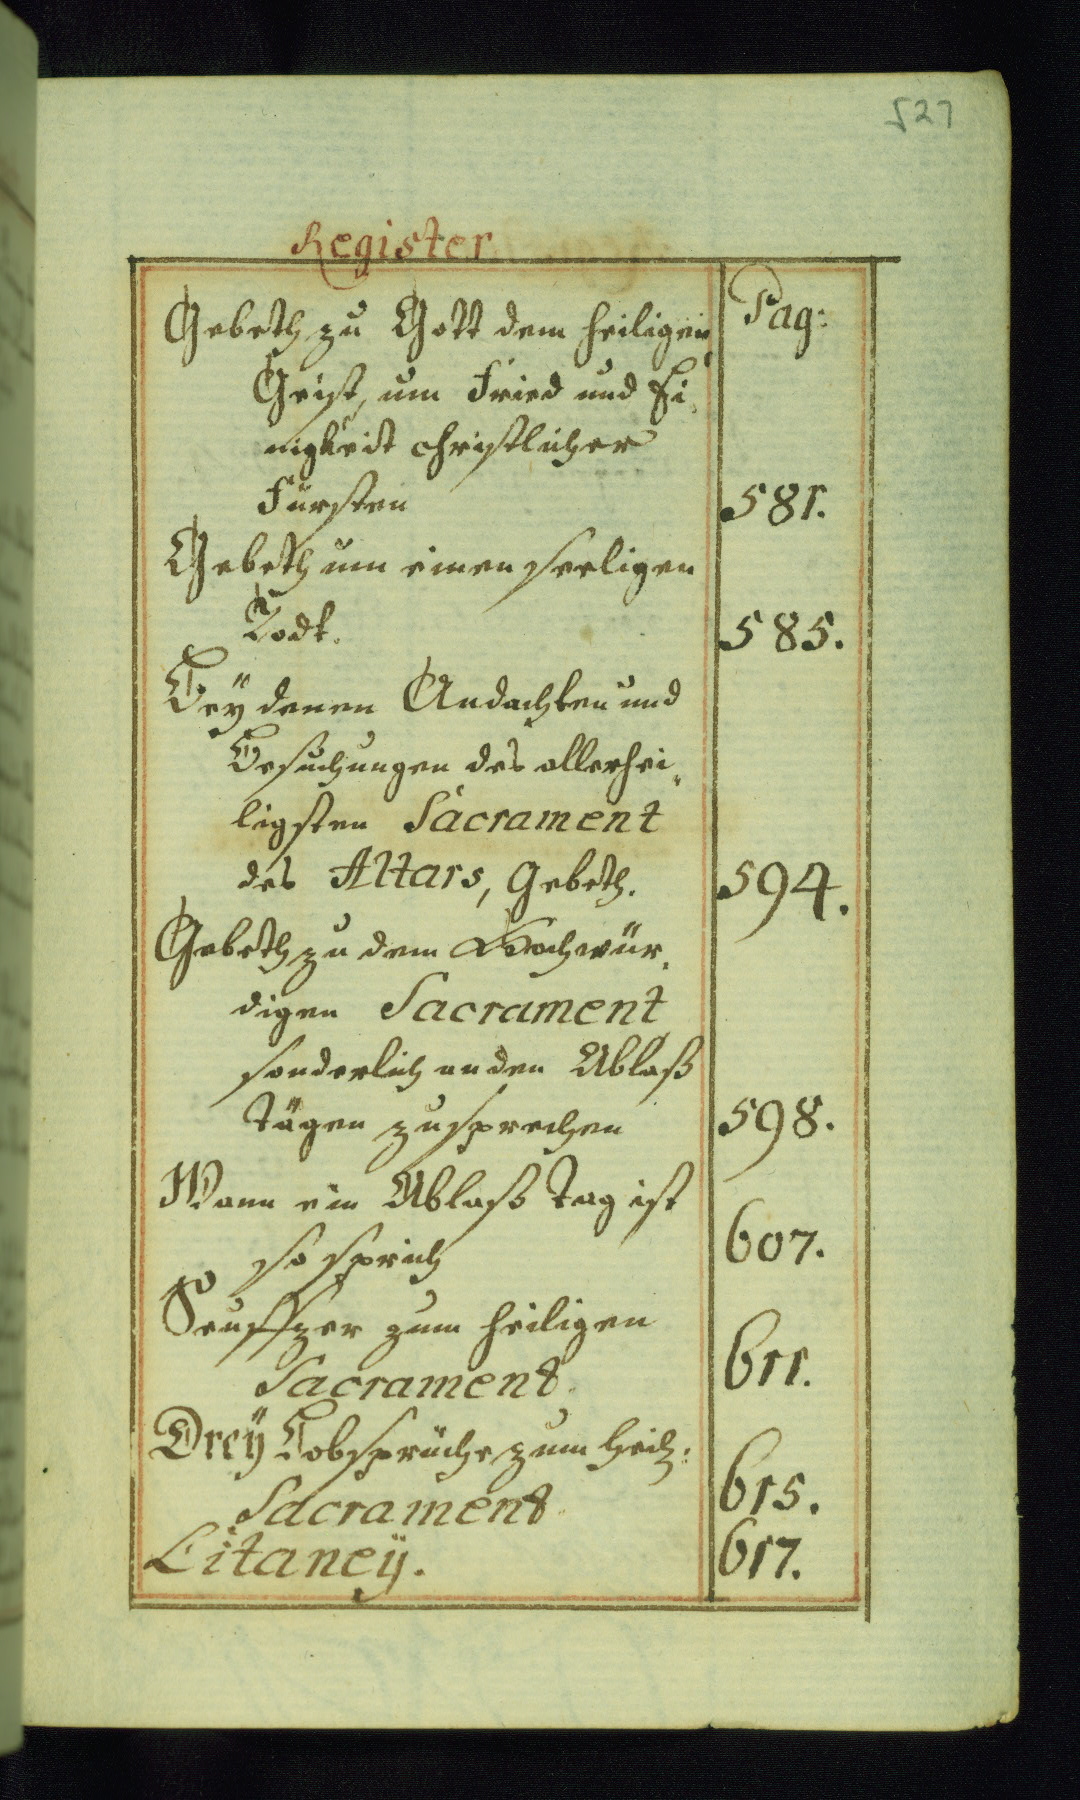 527
Register
Gebeth zu Gott dem heiligen Pag:
Geist, um Fried und Ei,
nigkeit christlicher
Fürsten 581.
Gebeth um einen seeligen
Todt. 585.
Beÿ denen Andachten und
Besuchungen des allerhei„
ligsten Sacrament
des Altars, Gebeth. 594.
Gebeth zu dem Hochwür„
digen Sacrament
sonderlich an den Ablaß
tägen zu sprechen 598.
Wann ein Ablaß tag ist
so sprich 607.
Seuffzer zum heiligen
Sacrament. 611.
Dreÿ Lobsprüche zum heil:
Sacrament 615.
Litaneÿ. 617.